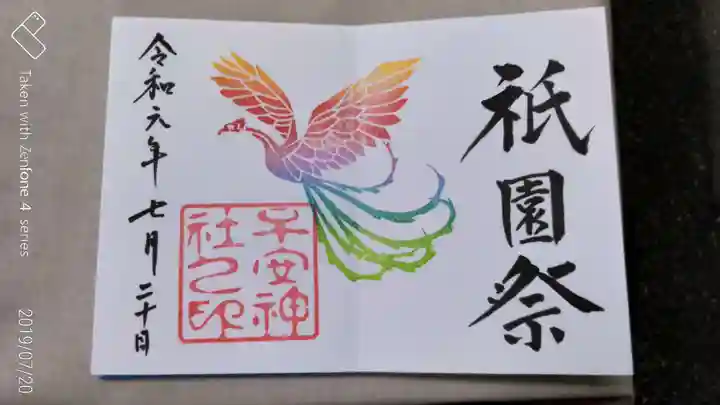 祇園祭
子安神
社之印
令和元年 七月二十日
Taken with Zenfone 4 series
2019/07/20